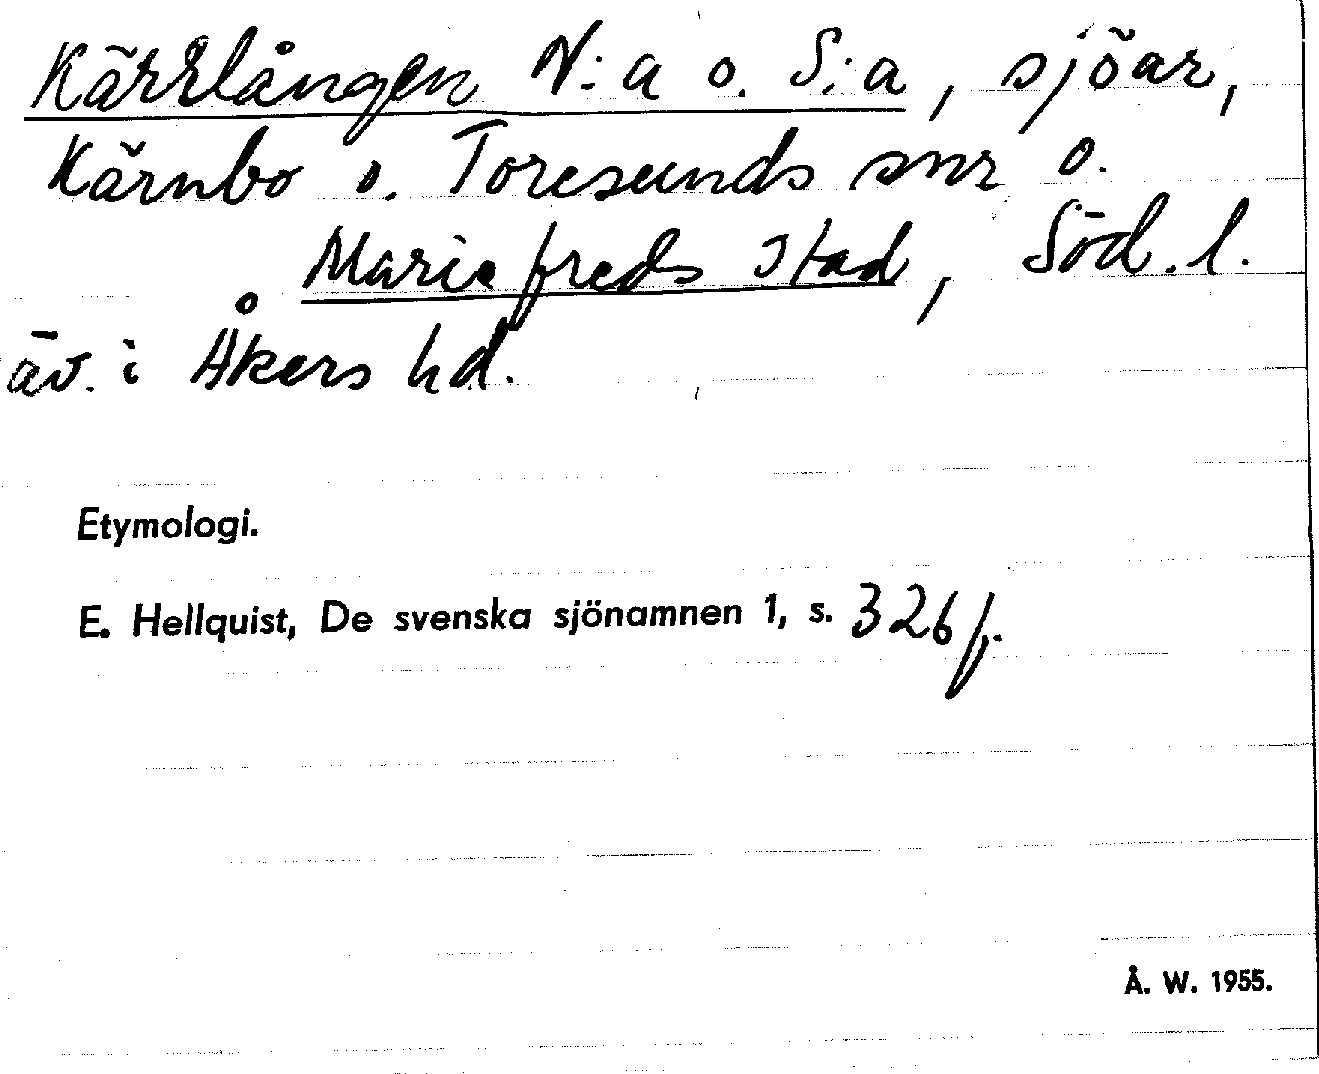 Kärrlången N:a o. S:a, sjöar,
Kärnbo o. Toresunds snr o.
Mariefreds stad, Söd. l.
äv. i Åkers hd.
Etymologi.
E. Hellquist, De svenska sjönamnen 1, s. 326 f.
Å. W. 1955.